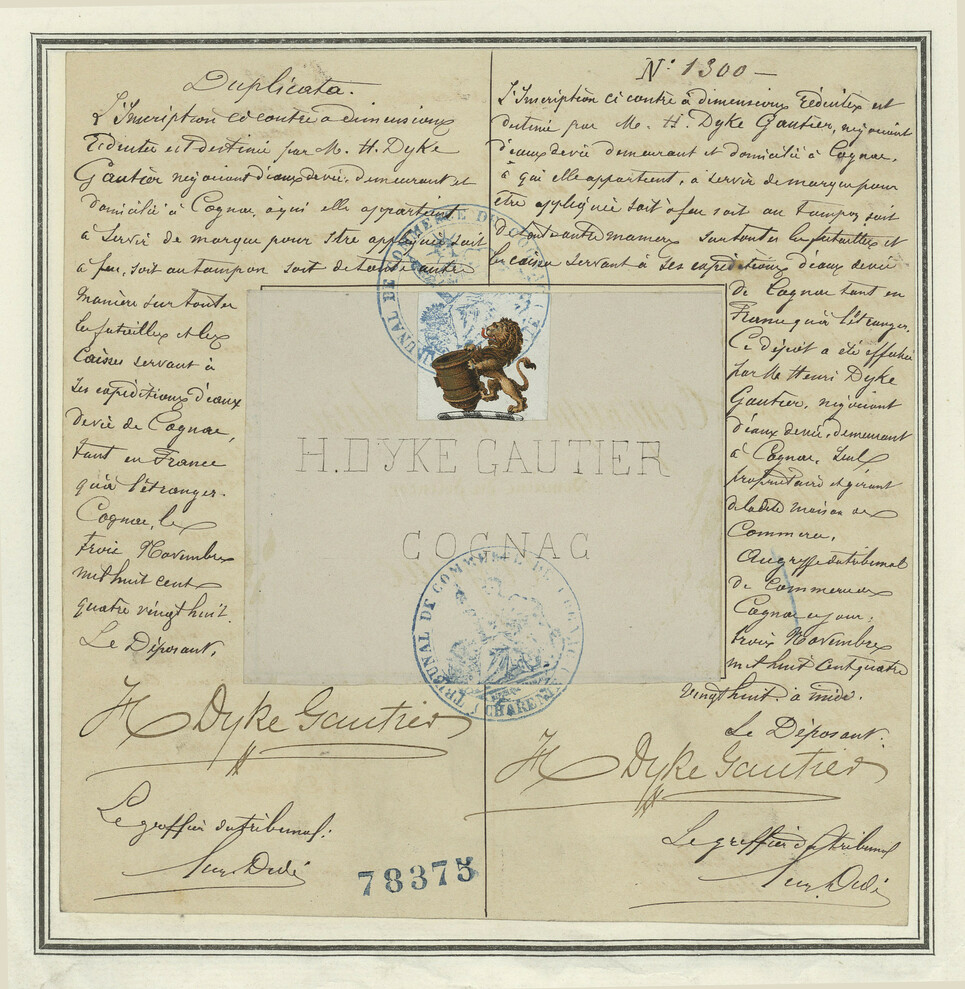 Duplicata.
L'Inscription ci contre à dimensions
Réduites est destinée par M. H. Dyke
Gautier négociant d'eaux de vie, demeurant et
domicilié à Cognac, à qui elle appartient
à servir de marque pour être appliquée soit
à feu, soit au tampon soit de toute autre
manière sur toutes
les futailles et les
Caisses servant à
ses expéditions d'eaux
de vie de Cognac,
tant en France
qu'à l'étranger.
Cognac, le
trois Novembre
mil huit cent
quatre vingt huit.
Le Déposant,
H Dyke Gautier
Le greffier du tribunal:
N° 1300 —
L'Inscription ci contre à dimensions Réduites est
destinée par M. H. Dyke Gautier, négociant
d'eaux de vie demeurant et domicilié à Cognac,
à qui elle appartient, à servir de marque pour
être appliquée soit à feu soit au tampon soit
de toute autre manière sur toutes les futailles et
les caisses servant à ses expéditions d'eaux de vie
de Cognac tant en
France qu'à l'étranger.
Ce dépôt a été effectué
par M. Henri Dyke
Gautier, négociant
d'eaux de vie, demeurant
à Cognac, seul
propriétaire et gérant
de la dite maison de
Commerce.
Au greffe du tribunal
de Commerce de
Cognac ce jour,
trois Novembre
mil huit cent quatre
vingt huit à midi.
Le Déposant.
H Dyke Gautier
Le greffier du tribunal
H. DYKE GAUTIER
COGNAC
TRIBUNAL DE COMMERCE DE COGNAC
TRIBUNAL DE COMMERCE DE COGNAC (CHARENTE)
78375